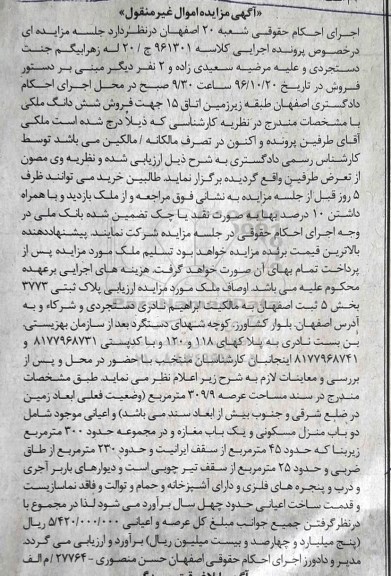 «آگهی مزایده اموال غیر منقول»
اجرای احکام حقوقی شعبه ۲۰ اصفهان درنظردارد جلسه مزایده ای
درخصوص پرونده اجرایی کلاسه ۹۶۱۳۰۱ ج / ۲۰ له زهرابیگم جنت
دستجردی و علیه مرضیه سعیدی زاده و ۲ نفر دیگر مبنی بر دستور
فروش در تاریخ ۹۶/۱۰/۲۰ ساعت ۹/۳۰ صبح در محل اجرای احکام
دادگستری اصفهان طبقه زیرزمین اتاق ۱۵ جهت فروش شش دانگ ملکی
با مشخصات مندرج در نظریه کارشناسی که ذیلاً درج شده است ملکی
آقای طرفین پرونده و اکنون در تصرف مالکانه / مالکین می باشد توسط
کارشناس رسمی دادگستری به شرح ذیل ارزیابی شده و نظریه وی مصون
از تعرض طرفین واقع گردیده برگزار نماید. طالبین خرید می توانند ظرف
۵ روز قبل از جلسه مزایده به نشانی فوق مراجعه و از ملک بازدید و با همراه
داشتن ۱۰ درصد بها به صورت نقد یا چک تضمین شده بانک ملی در
وجه اجرای احکام حقوقی در جلسه مزایده شرکت نمایند. پیشنهاددهنده
بالاترین قیمت برنده مزایده خواهد بود تسلیم ملک مورد مزایده پس از
پرداخت تمام بهای آن صورت خواهد گرفت. هزینه های اجرایی برعهده
محکوم علیه می باشد. اوصاف ملک مورد مزایده ارزیابی پلاک ثبتی ۳۷۷۳
بخش ۵ ثبت اصفهان به مالکیت ابراهیم نادری دستجردی و شرکاء و به
آدرس اصفهان، بلوار کشاورز، کوچه شهدای دستگرد بعد از سازمان بهزیستی،
بن بست نادری به پلاکهای ۱۱۸ و ۱۲۰ و با کدپستی ۸۱۷۷۹۶۸۷۳۱ و
۸۱۷۷۹۶۸۷۴۱ اینجانبان کارشناسان منتخب با حضور در محل و پس از
بررسی و معاینات لازم به شرح زیر اعلام نظر می نماید. طبق مشخصات
مندرج در سند مساحت عرصه ۳۰۹/۹ مترمربع (وضعیت فعلی ابعاد زمین
در ضلع شرقی و جنوب بیش از ابعاد سند می باشد) و اعیانی موجود شامل
دو باب منزل مسکونی و یک باب مغازه و در مجموعه حدود ۳۰۰ مترمربع
زیربنا که حدود ۴۵ مترمربع از سقف ایرانیت و حدود ۲۳۰ مترمربع از طاق
ضربی و حدود ۲۵ مترمربع از سقف تیر چوبی است و دیوارهای باربر آجری
و درب و پنجره های فلزی و دارای آشپزخانه و حمام و توالت و فاقد نماسازیست
و قدمت ساخت اعیانی حدود چهل سال برآورد می شود لذا در مجموع با
درنظر گرفتن جمیع جوانب مبلغ کل عرصه و اعیانی ۵/۴۲۰/۰۰۰/۰۰۰ ریال
(پنج میلیارد و چهارصد و بیست میلیون ریال) برآورد و ارزیابی می گردد.
مدیر و دادورز اجرای احکام حقوقی اصفهان حسن منصوری - ۲۷۷۶۴ / م الف